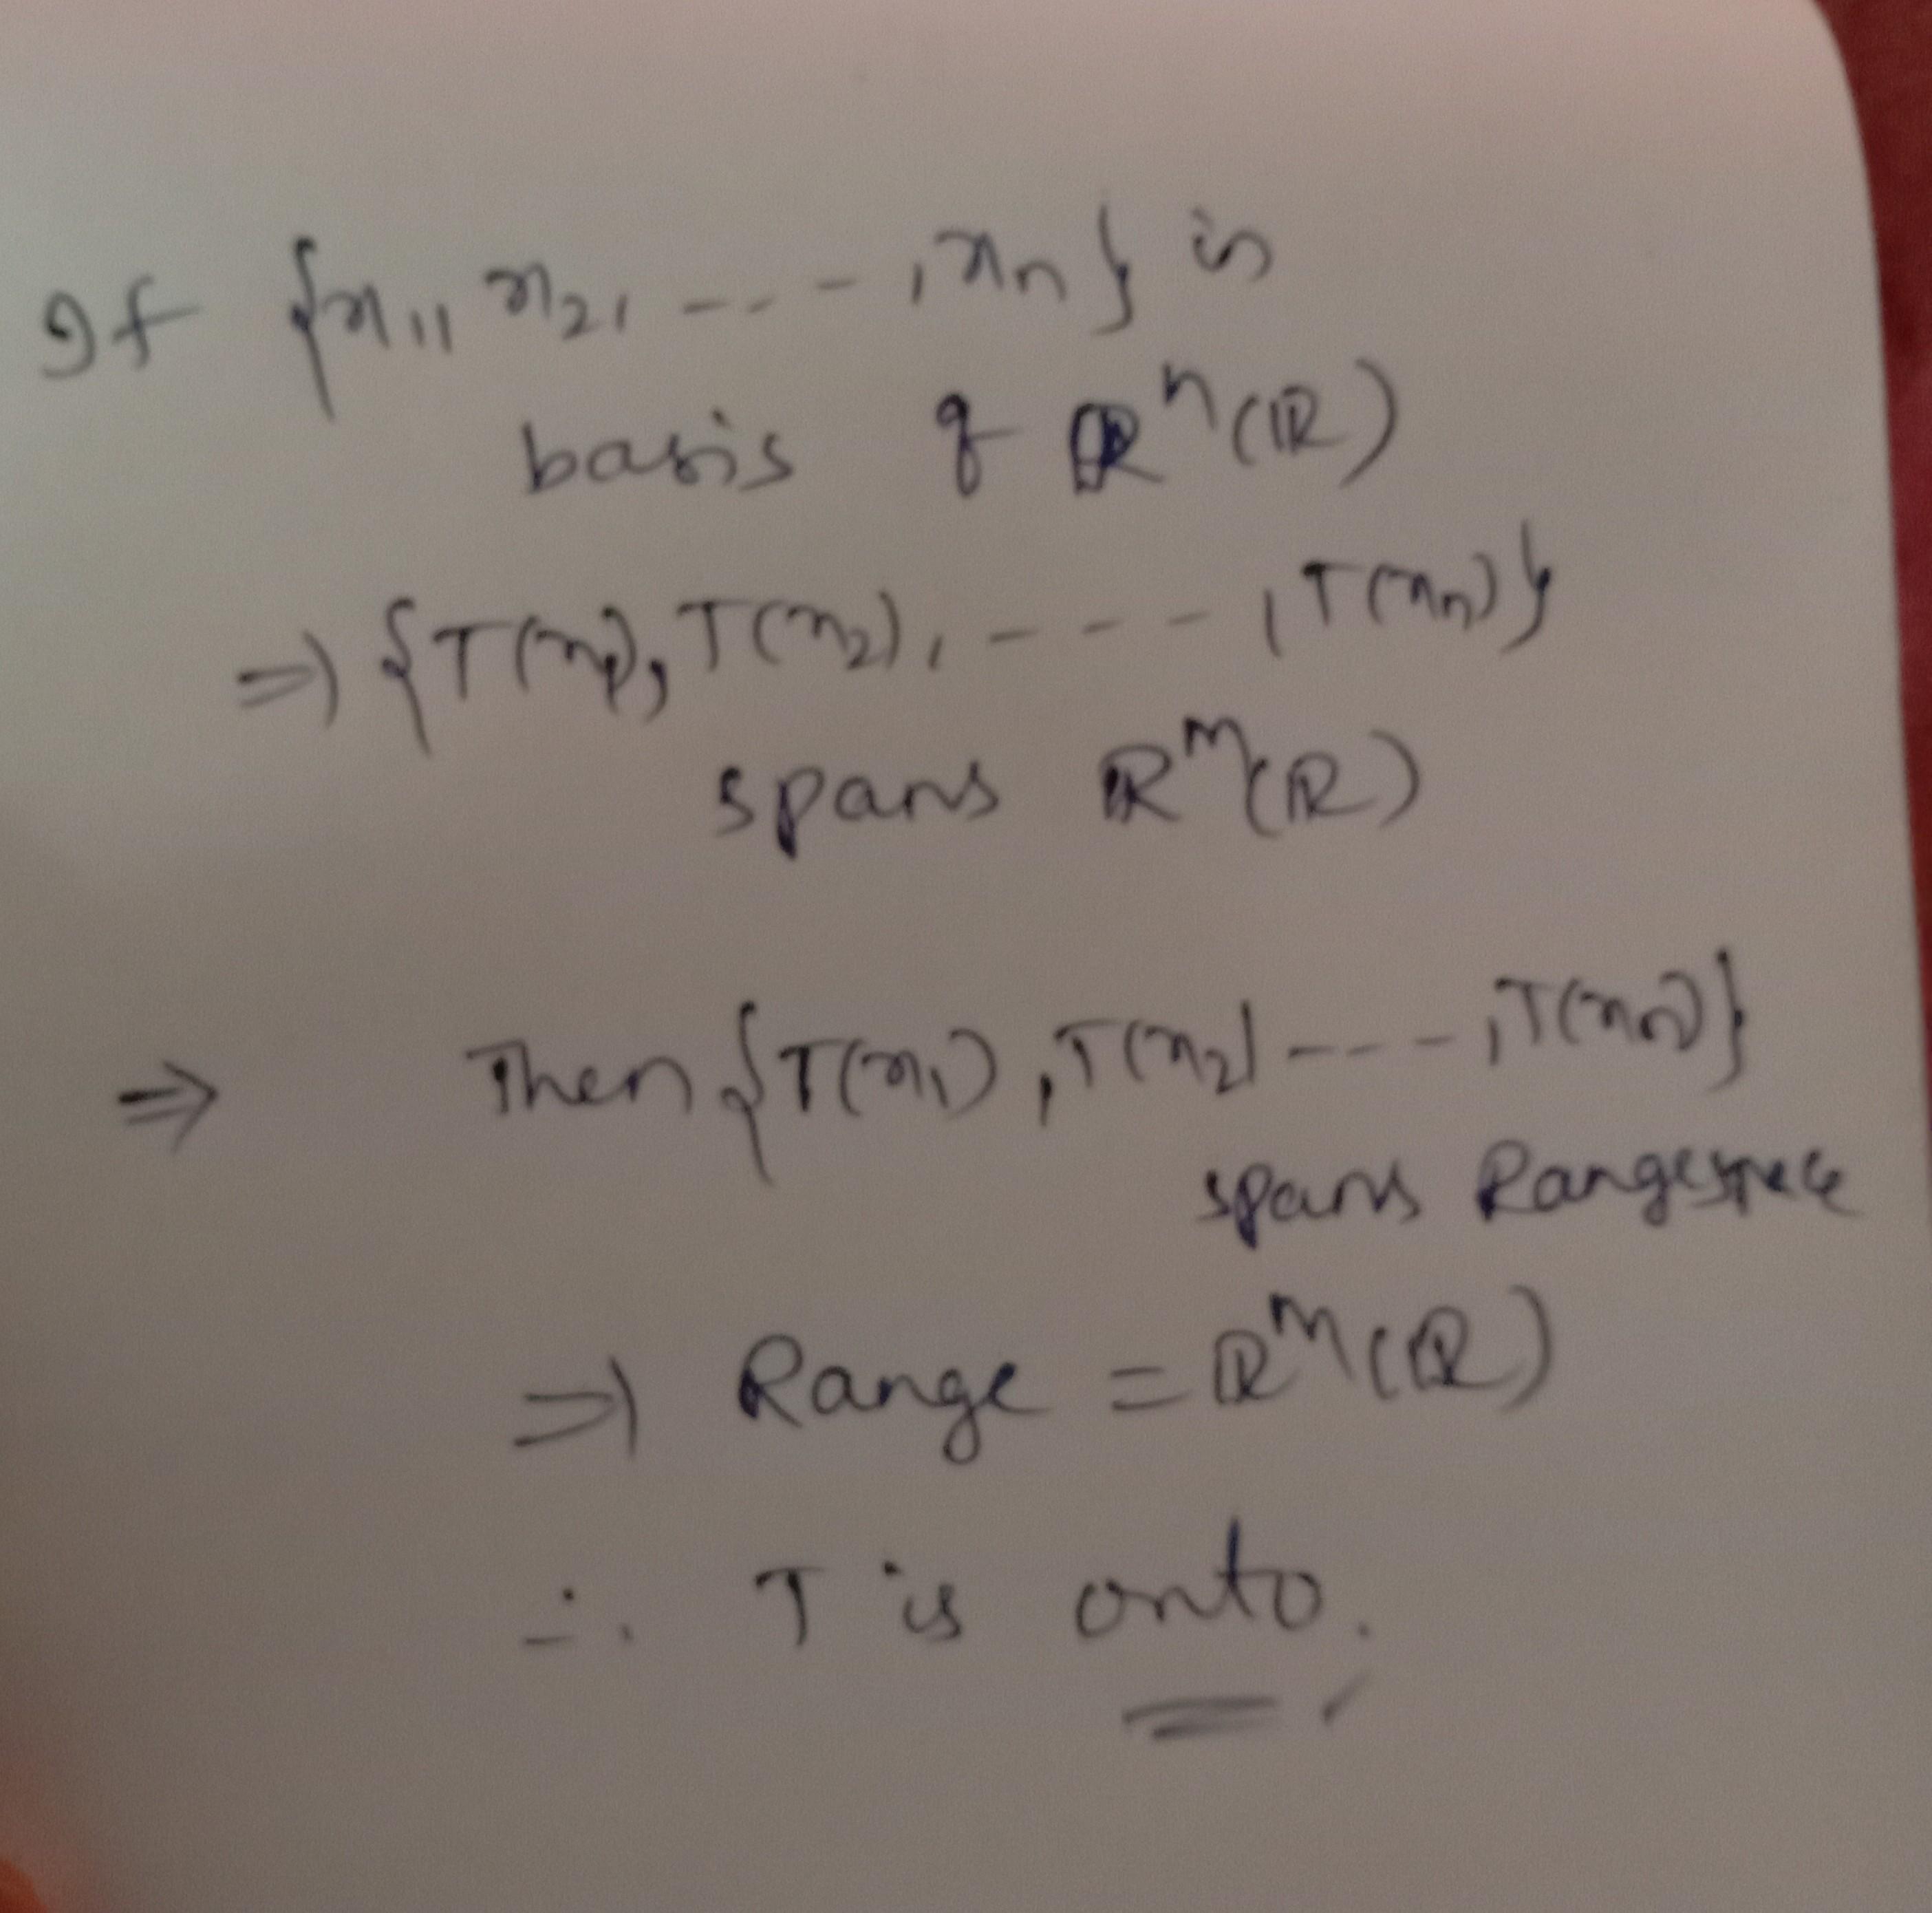 If {x₁, x₂, ----, xₙ} is
basis of ℝⁿ(ℝ)
⇒ {T(x₁), T(x₂), ----, T(xₙ)}
spans ℝᵐ(ℝ)
⇒ Then {T(x₁), T(x₂) ----, T(xₙ)}
spans Rangespace
⇒ Range = ℝᵐ(ℝ)
∴ T is onto.